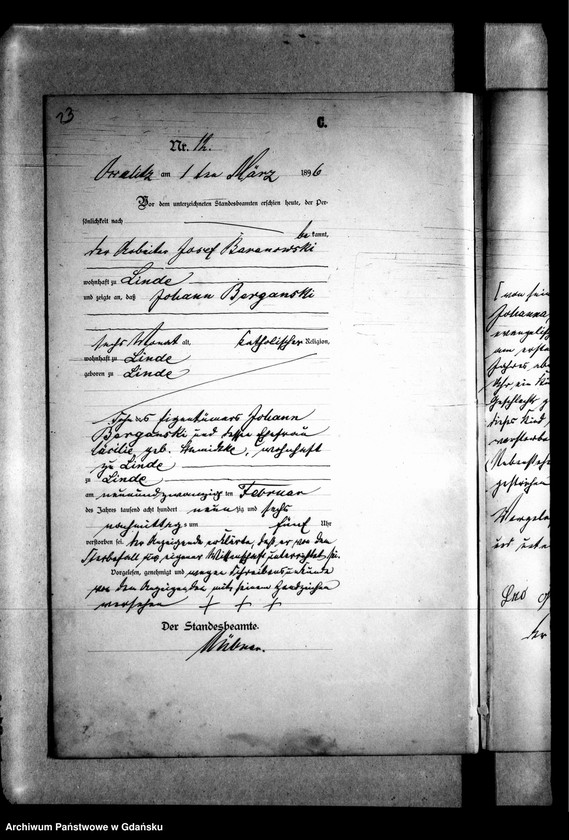 23
C.
Nr. 12.
am 1 ten März 1896
Vor dem unterzeichneten Standesbeamten erschien heute, der Per-
sönlichkeit nach
be kannt,
der Arbeiter Josef Baranowski
wohnhaft zu Linde
und zeigte an, daß Johann Berganski
sechs Monat alt, katholischer Religion,
wohnhaft zu Linde
geboren zu Linde
Sohn des Eigentümers Johann
Berganski und dessen Ehefrau
Cäcilie geb. wohnhaft
zu Linde
zu Linde
am neunundzwanzig ten Februar
des Jahres tausend acht hundert neun zig und sechs
nachmittags um fünf Uhr
verstorben sei. der Anzeigende erklärte, daß er von dem
Sterbefall aus eigener Wissenschaft unterrichtet sei.
Vorgelesen, genehmigt und wegen Schreibensunkunde
von dem Anzeigenden mit seinem Handzeichen
versehen + + +
Der Standesbeamte.
[von sein
Johanna
evangelisch
am ersten
Jahres
Uhr ein
Geschlechts
dieses Kind
verstorben
gestrichen
Vorgeles
Archiwum Państwowe w Gdańsku